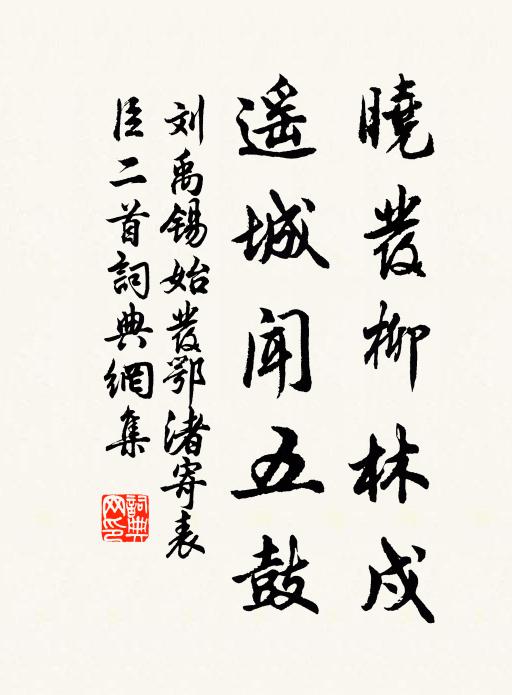 曉發柳林戍
遥城闻五鼓
刘禹锡始發鄂渚寄表
臣二首詞典網集
詞典
网印